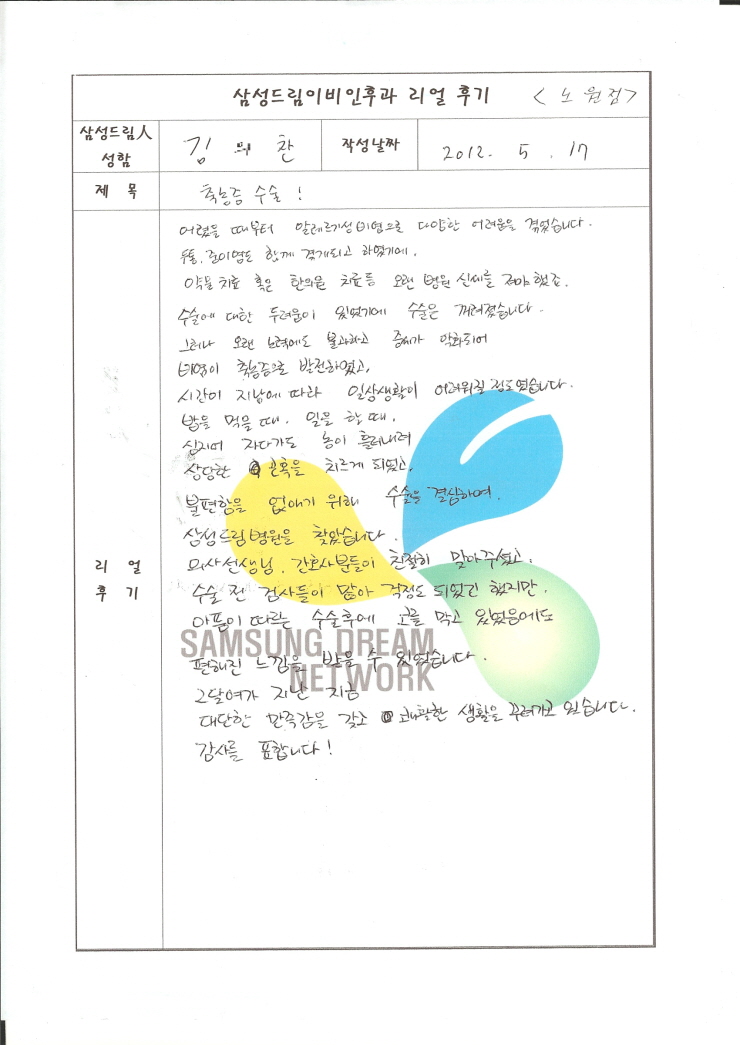 삼성드림이비인후과 리얼 후기 <노원점>
삼성드림人 성함
김의찬
작성날짜
2012. 5. 17
제 목
축농증 수술!
어렸을 때부터 알레르기성비염으로 다양한 어려움을 겪었습니다.
두통, 중이염도 함께 겪게되고 하였기에,
약물치료 혹은 한의원 치료등 오랜 병원 신세를 져야 했죠.
수술에 대한 두려움이 있었기에 수술은 꺼려졌습니다.
그러나 오랜 노력에도 불과하고 증세가 악화되어
비염이 축농증으로 발전하였고,
시간이 지남에 따라 일상생활이 어려워질 정도였습니다.
밥을 먹을 때, 일을 할 때,
심지어 자다가도 농이 흘러내려
상당한 곤혹을 치르게 되었고,
불편함을 없애기 위해 수술을 결심하여,
삼성드림병원을 찾았습니다.
의사선생님, 간호사분들이 친절히 맞아주셨고,
리 얼
후 기
수술 전 검사들이 많아 걱정도 되었긴 했지만,
아픔이 따르는 수술후에 코를 막고 있었음에도
SAMSUNG DREAM
NETWORK
편해진 느낌을 받을 수 있었습니다.
2달여가 지난 지금
대단한 만족감을 갖고 쾌활한 생활을 꾸려가고 있습니다.
감사를 표합니다!